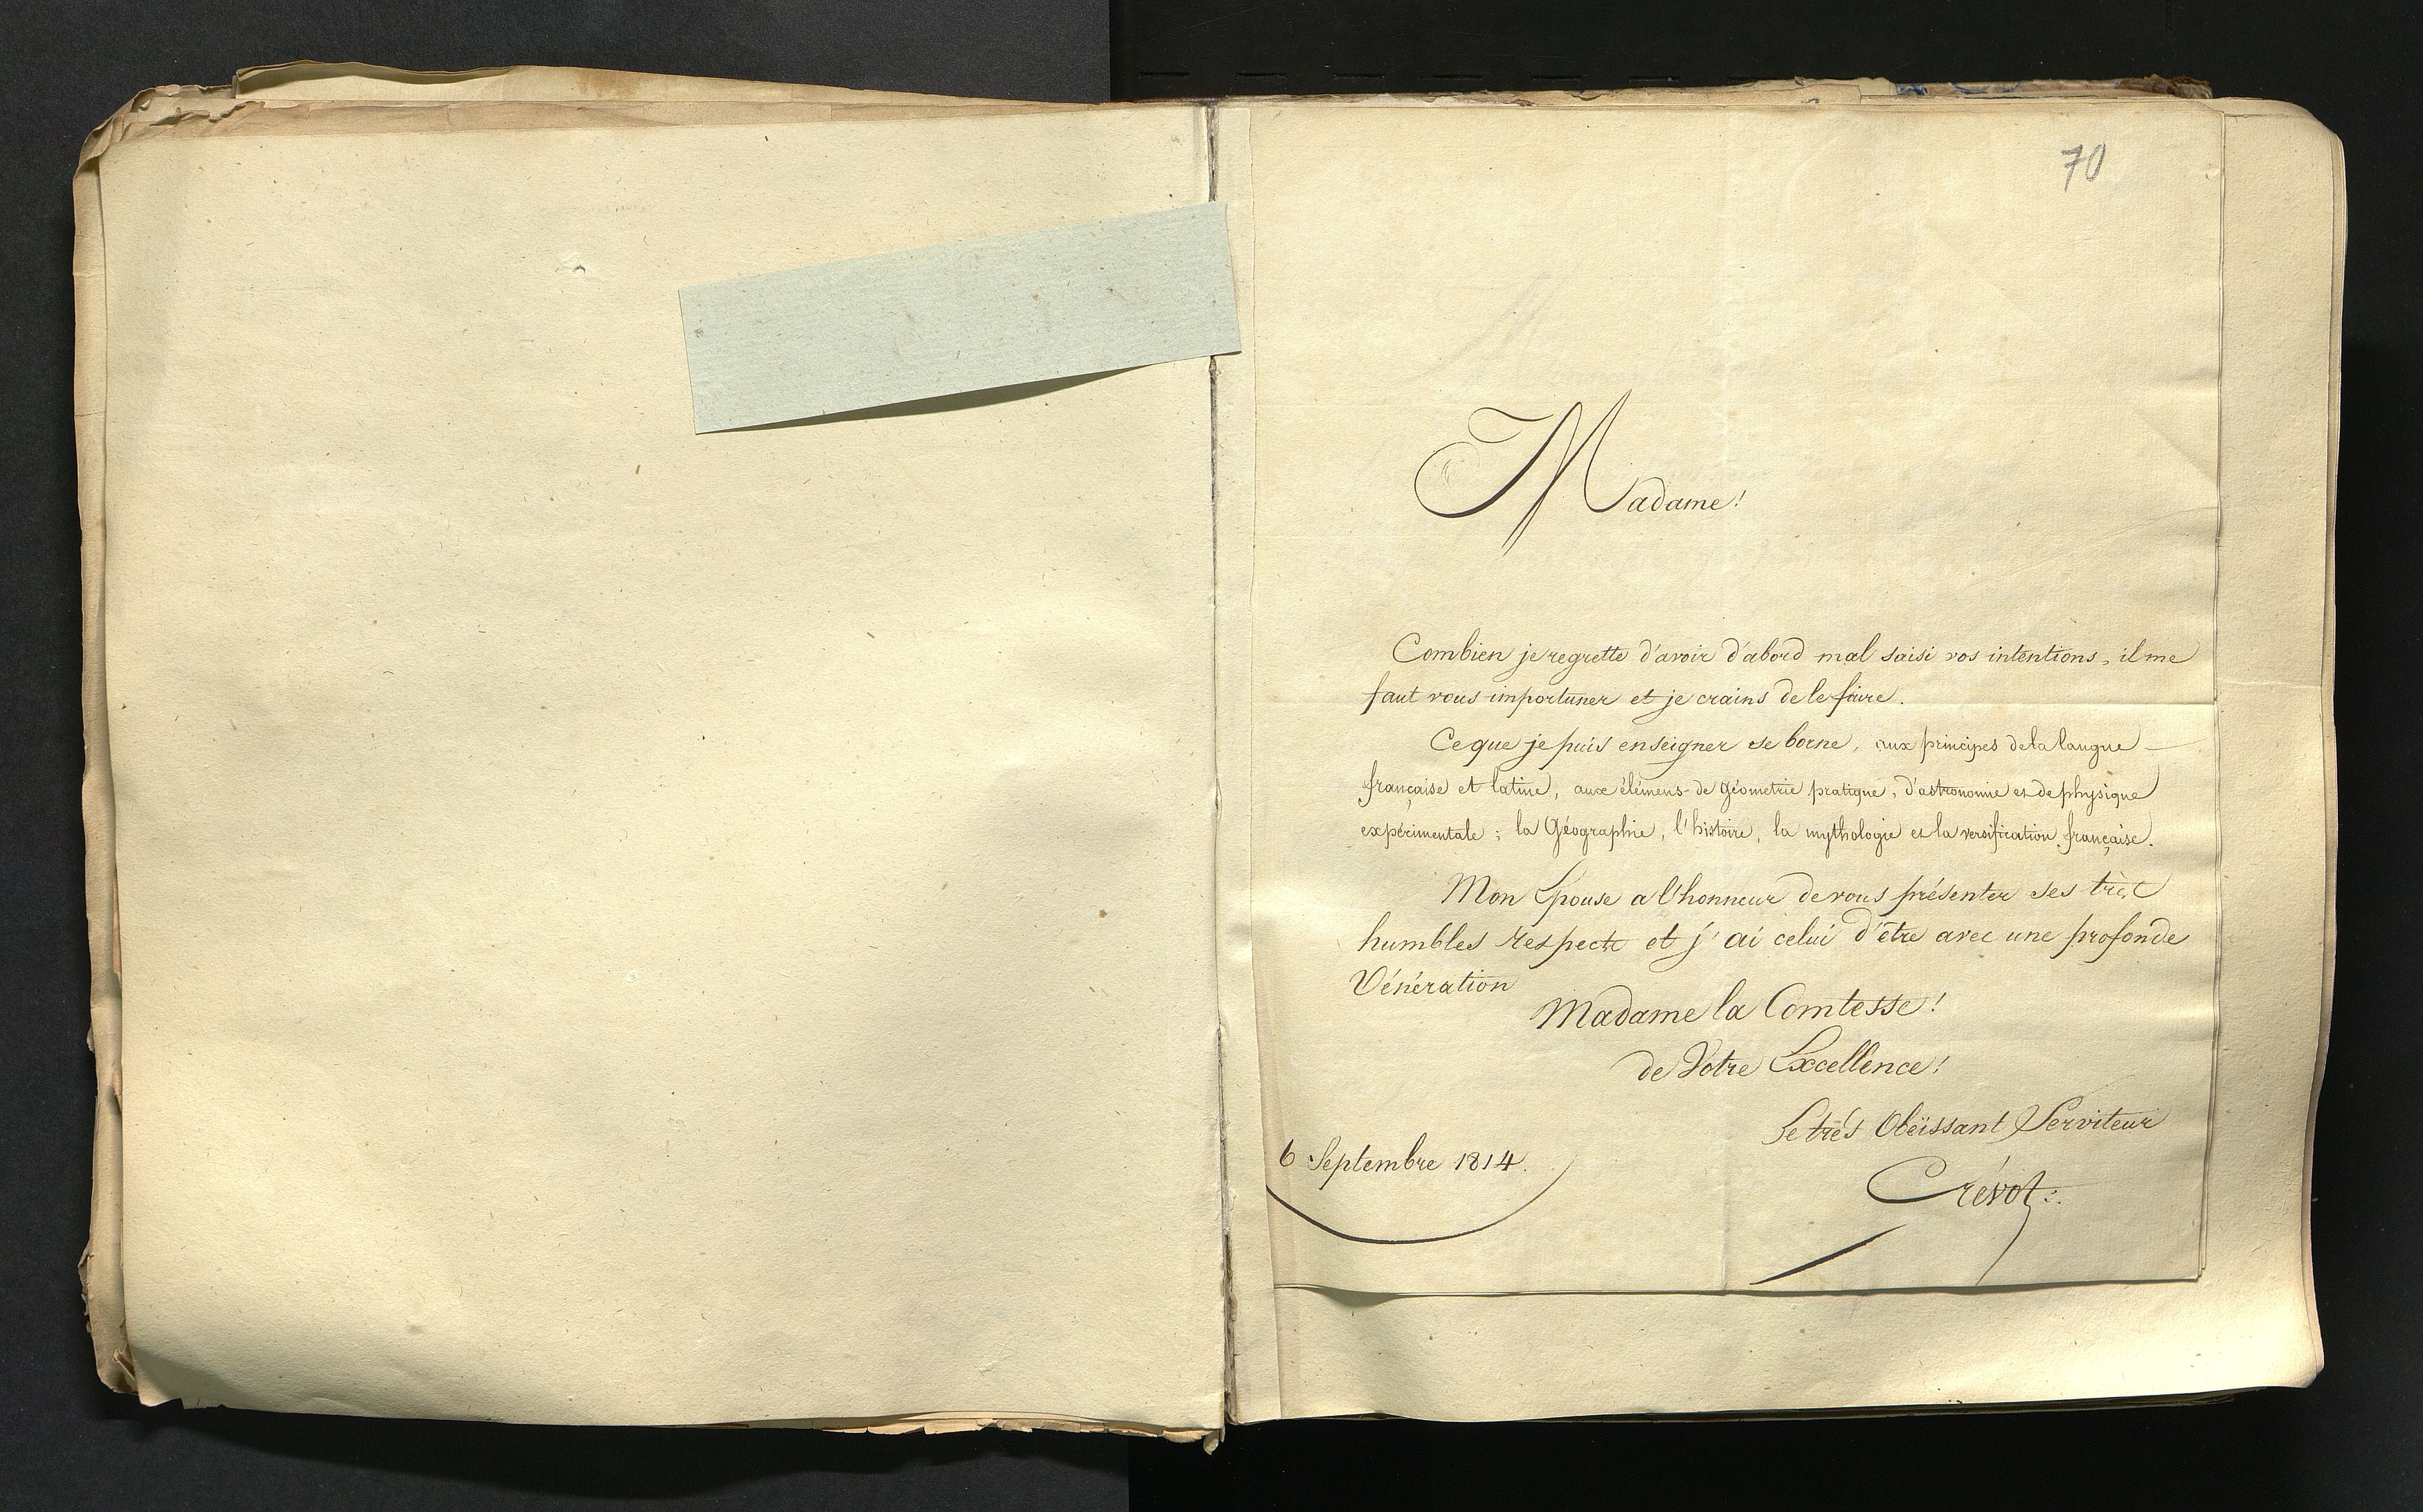 70
Madame!
Combien je regrette d'avoir d'abord mal saisi vos intentions, il me
faut vous importuner et je crains de le faire.
Ce que je puis enseigner se borne, aux principes de la langue
française et latine, aux élémens de géometrie pratique, d'astronomie et de physique
expérimentale ; la Géographie, l'histoire, la mythologie et la versification française.
Mon Epouse a l'honneur de vous présenter ses très
humbles respects et j'ai celui d'être avec une profonde
Vénération
Madame la Comtesse!
de Votre Excellence!
Le très Obëissant Serviteur
6 Septembre 1814.
Crévot